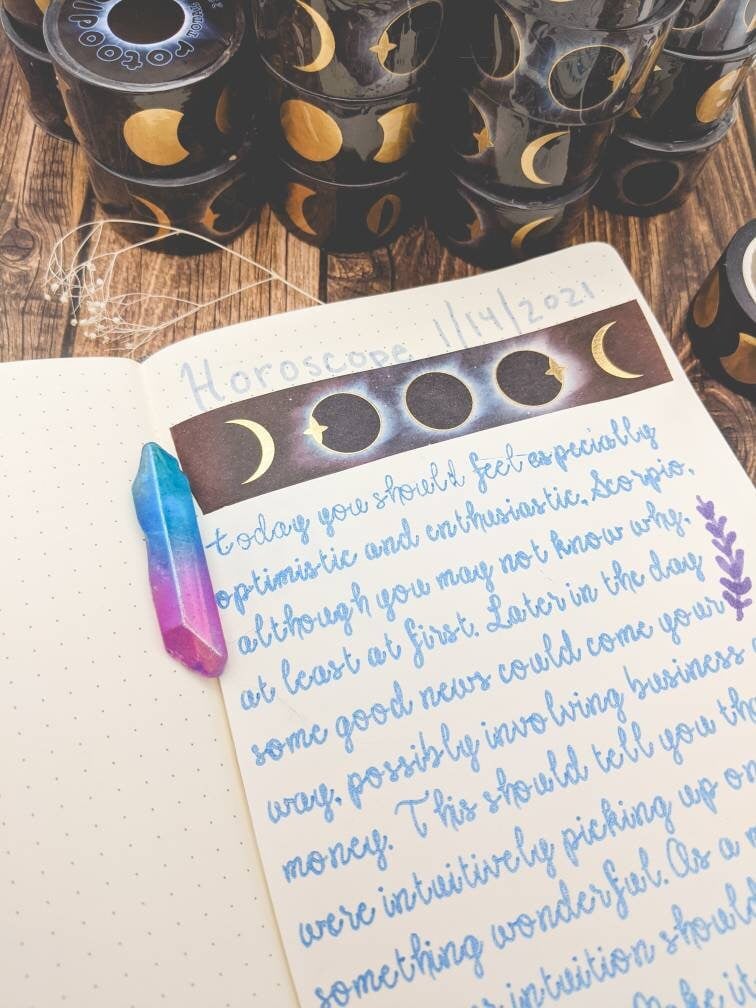 Horoscope 1/14/2021
today you should feel especially
optimistic and enthusiastic, Scorpio,
although you may not know why,
at least at first. Later in the day
some good news could come your
way, possibly involving business
money. This should tell you
were intuitively picking up
something wonderful. As a
intuition should